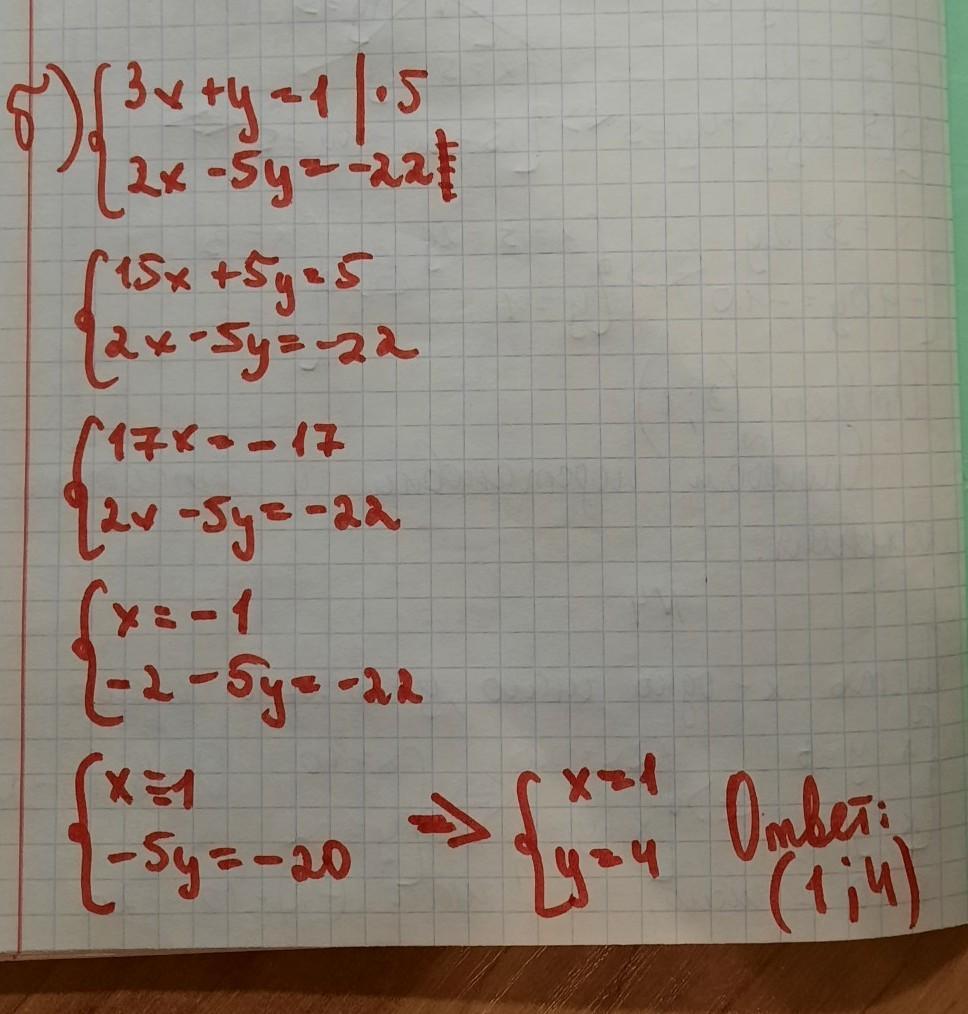 б) { 3x + y = 1 | · 5
2x - 5y = -22
{ 15x + 5y = 5
2x - 5y = -22
{ 17x = - 17
2x - 5y = -22
{ x = - 1
-2 - 5y = -22
{ x = 1
-5y = -20
=> { x = 1
y = 4
Ответ:
(1; 4)